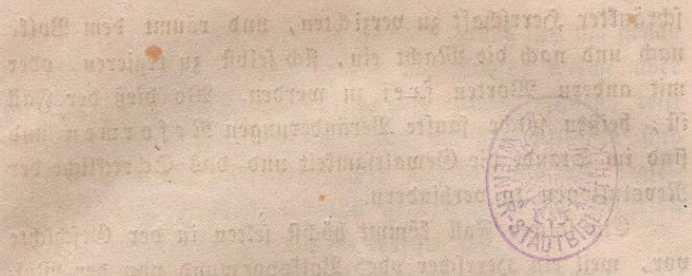 schränkter Herrschaft zu verzichten, und räumt dem Volke
nach und nach die Macht ein, sich selbst zu regieren, oder
mit andern Worten frei zu werden. Wo dieß der Fall
ist, heißen solche sanfte Veränderungen Reformen und
sind im Stande die Gewaltsamkeit und das Schreckliche der
Revolutionen zu verhindern.
Fall kömmt höchst selten in der Geschichte
vor, weil Herrscher
WIENER-STADTBIBLIOTHEK